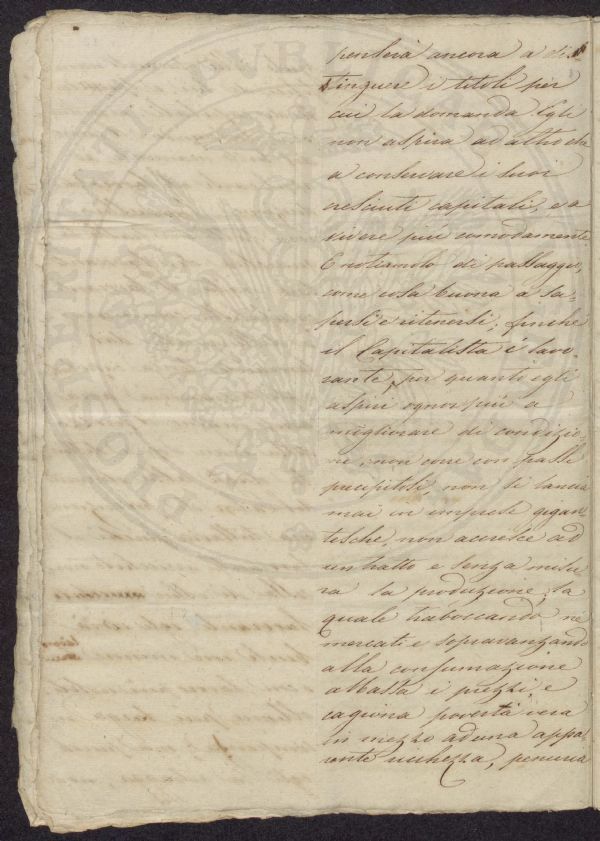 PROSPERITATI PUBLICAE
penserà ancora a dis
tinguere i titoli per
cui la domanda. Egli
non aspira ad altro che
a conservare i suoi
cresciuti capitali, e a
vivere più comodamente
E notiamolo di passaggio,
come cosa buona a sa-
persi e ritenersi, finchè
il Capitalista è lavo-
rante, per quanti egli
aspiri ognor più a
migliorare di condizio-
ne, non corre con passi
precipitosi, non si lancia
mai in imprese gigan-
tesche, non accresce ad
un tratto e senza misu
ra la produzione, la
quale traboccando ne
mercati e sopravanzando
alla consumazione
abbassa i prezzi, e
cagiona povertà vera
in mezzo ad una appa
rente ricchezza, penuria